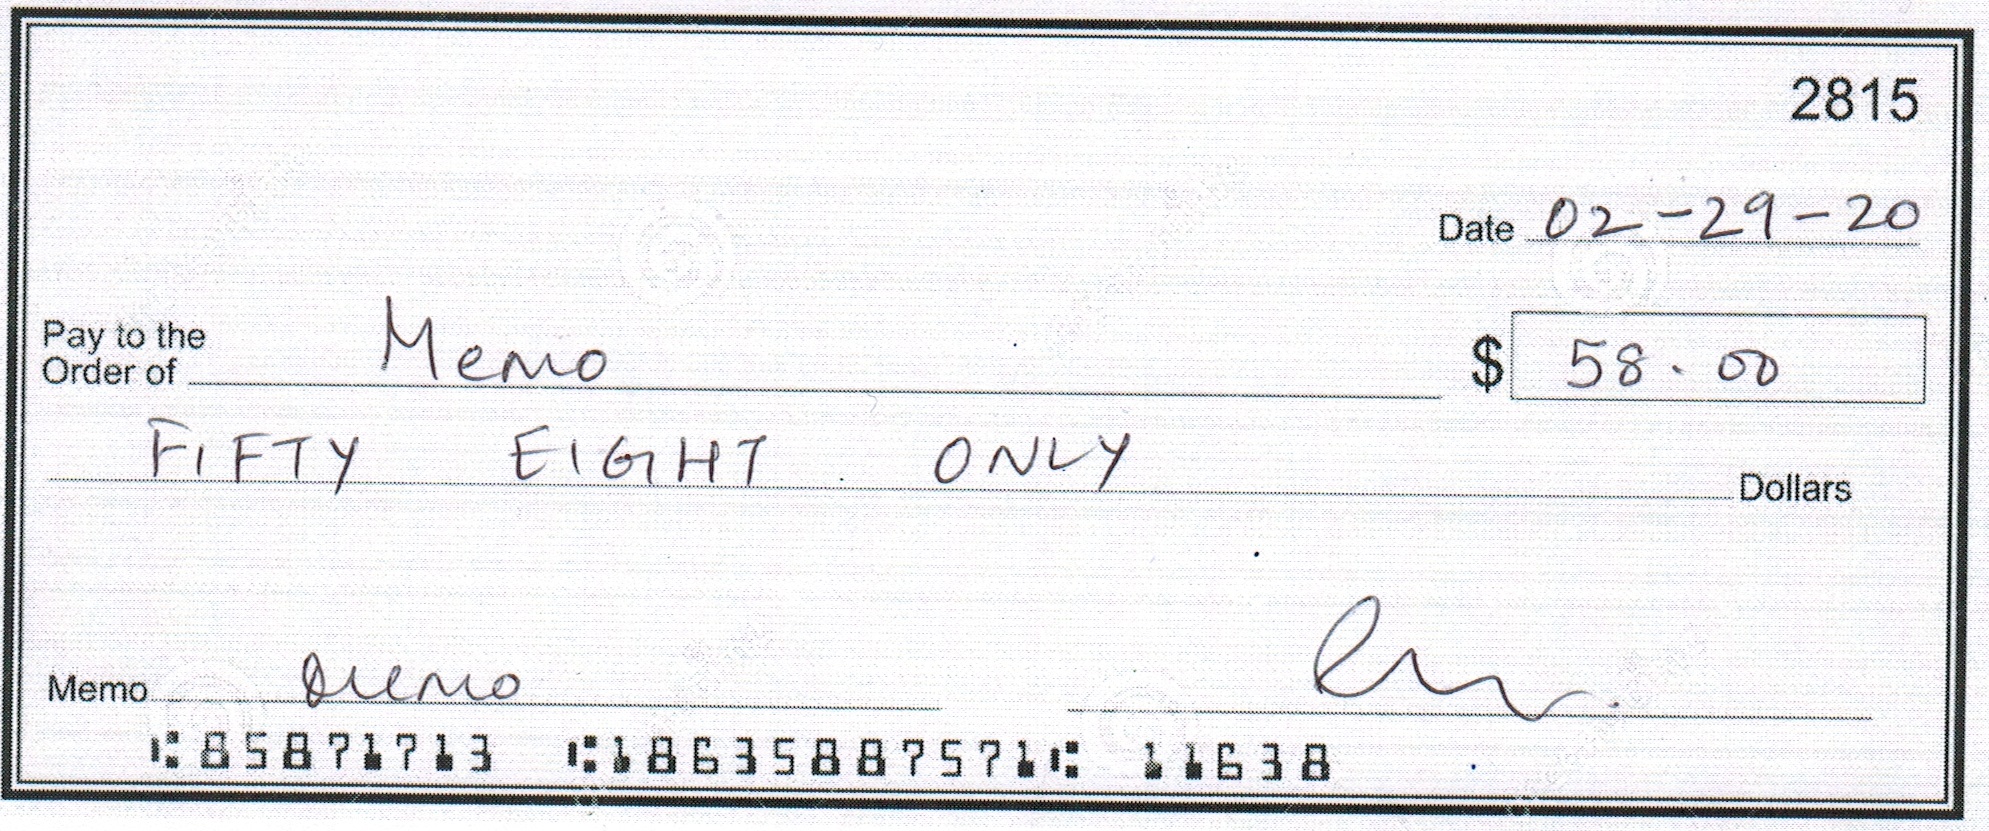 2815
Date 02-29-20
Pay to the
Order of Memo $ 58.00
FIFTY EIGHT ONLY Dollars
Memo
⑆85871713 ⑆18635887571⑆ 11638